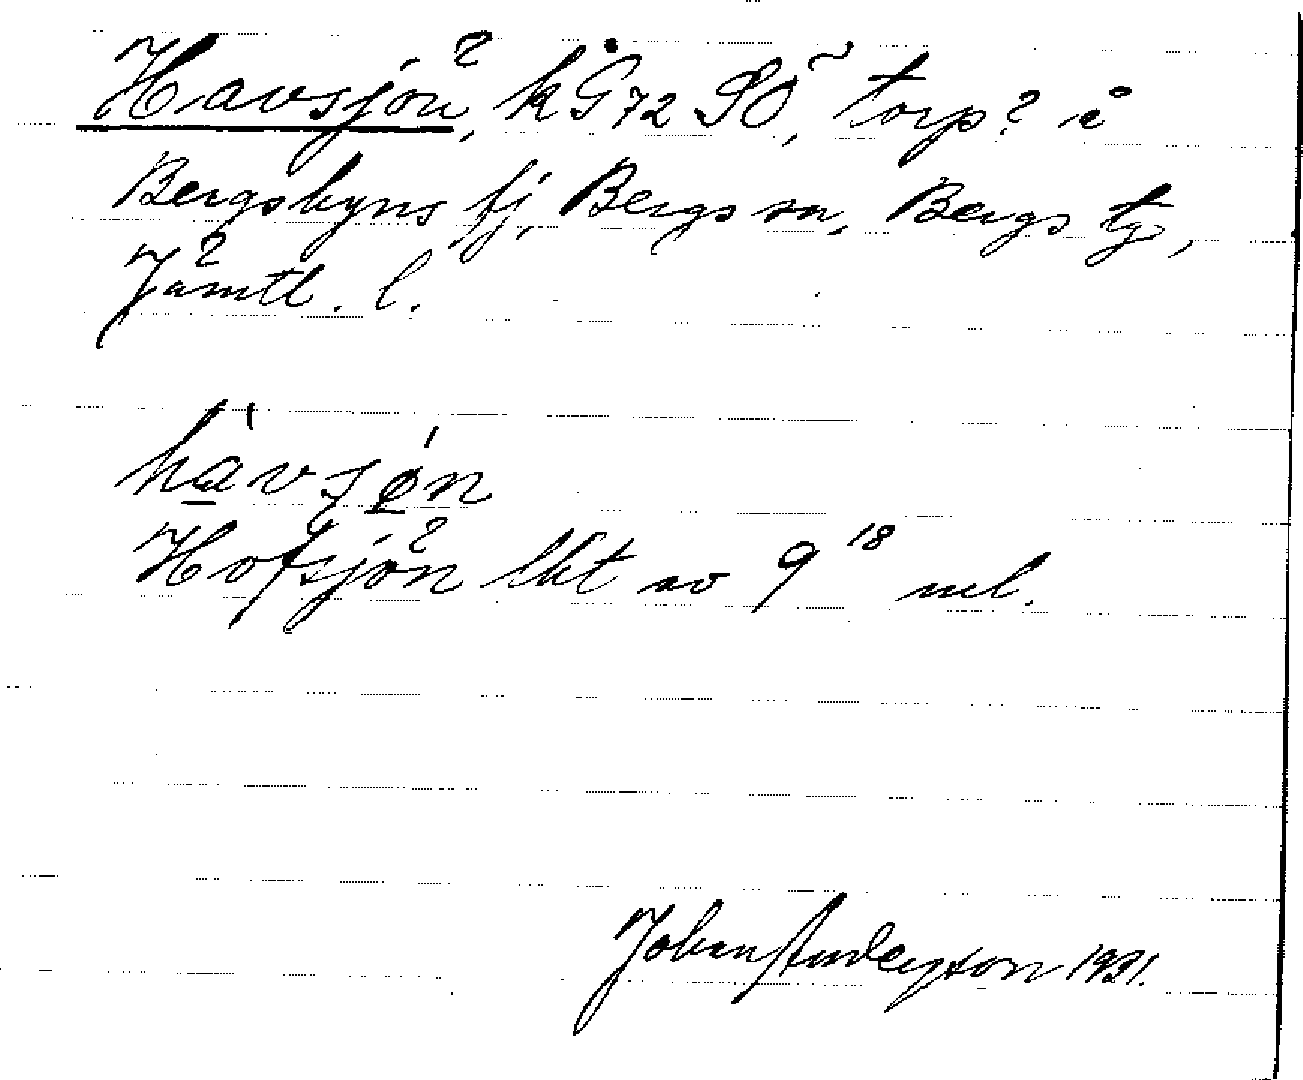 Havsjön, k G̊72 SÖ, torp? i
Bergsbyns fj, Bergs sn, Bergs tg,
Jämtl. l.
hàvsǿn
Hofsjön lht av 9¹⁸ ml.
Johan Anderzson 1931.